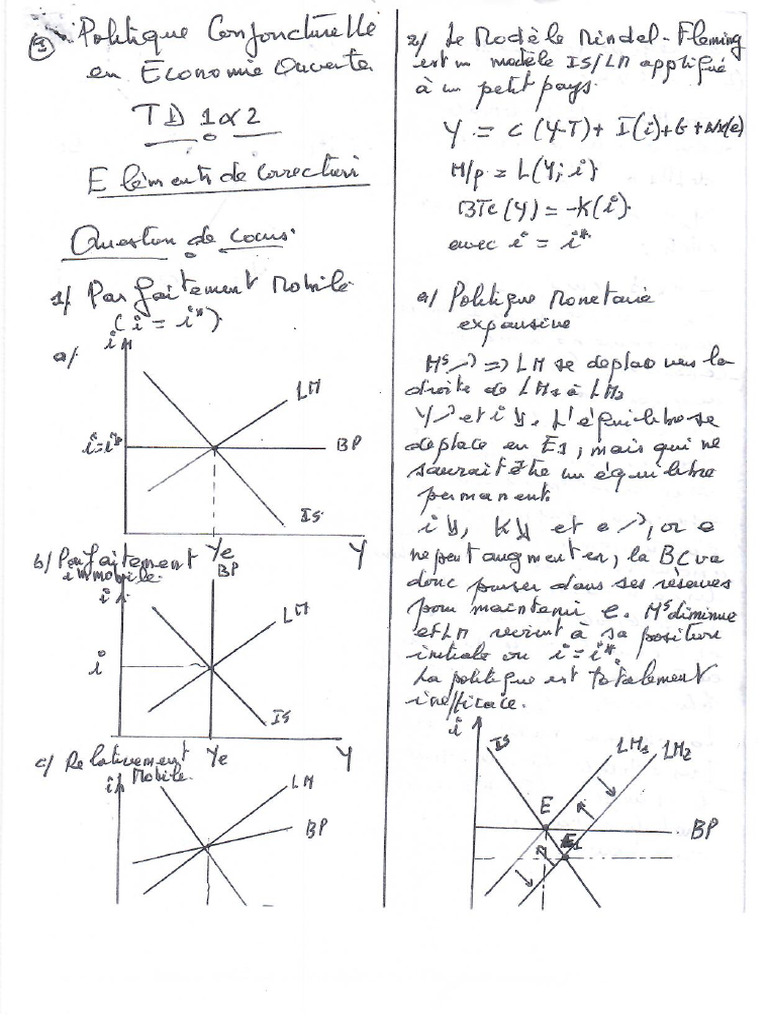 ①
Politique Conjoncturelle
en Économie Ouverte
TD 1 & 2
Eléments de correction
Question de cours:
1/ Parfaitement Mobile
(i = i*)
a/
i
LM
i=i*
BP
IS
Ye
Y
b/ Parfaitement
immobile.
BP
i
LM
i
IS
Ye
Y
c/ Relativement
Mobile.
i
LM
BP
2/ Le Modèle Mindel-Fleming
est un modèle IS/LM appliqué
à un petit pays.
Y = C(Y-T) + I(i) + G + NX(e)
M/p = L(Y; i)
BTC(Y) = -K(i).
avec i = i*
a/ Politique Monetaire
expansive
Ms ↗ => LM se deplace vers la
droite de LM1 à LM2
Y ↗ et i ↘. L'équilibre se
deplace en E1, mais qui ne
saurait être un équilibre
permanent.
i ↘, K ↘ et e ↗, or e
ne peut augmenter, la BC va
donc puiser dans ses réserves
pour maintenir e. Ms diminue
et LM revient à sa position
initiale ou i = i*.
La politique est totalement
inefficace.
i
IS
LM1
LM2
E
E1
BP